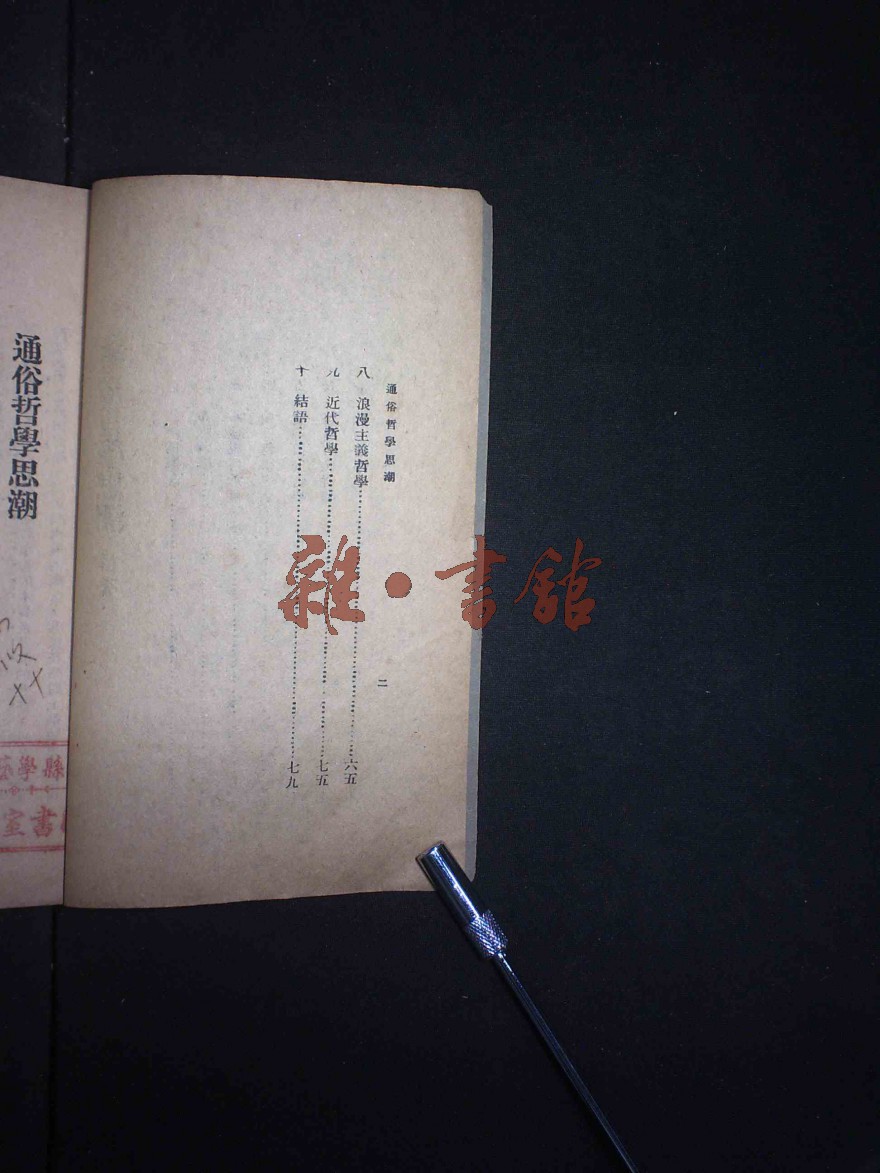 通俗哲學思潮
二
八 浪漫主義哲學……六五
九 近代哲學……七五
十 結語……七九
通俗哲學思潮
縣學
書室
雜·書舘